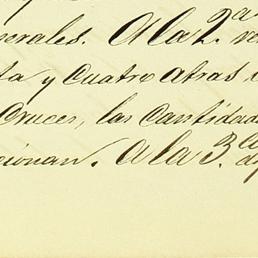 nerales. A la 2.ª
ta y cuatro atras
Cruces, las cantidad
cionan. A la 3.ª